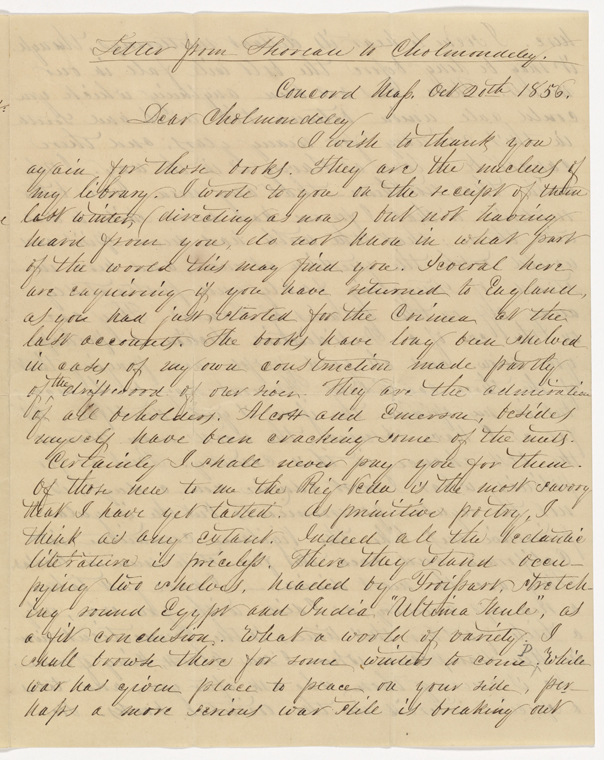 Letter from Thoreau to Cholmondeley.
Concord Mass. Oct 20th 1856.
Dear Cholmondeley
I wish to thank you
again for those books. They are the nucleus of
my library. I wrote to you on the receipt of them
last winter, (directing as now) but not having
heard from you, do not know in what part
of the world this may find you. Several here
are enquiring if you have returned to England,
as you had just started for the Crimea at the
last accounts. The books have long been shelved
in cases of my own construction made partly
of the driftwood of our river. They are the admiration
of all beholders. Alcott and Emerson, besides
myself have been cracking some of the nuts.
Certainly I shall never pay you for them.
Of those new to me the Rig Veda is the most savory
that I have yet tasted. As primitive poetry, I
think as any extant. Indeed all the Vedantic
literature is priceless. There they stand occu-
pying two shelves, headed by Froissart, stretch-
ing round Egypt and India "Ultima Thule", as
a fit conclusion. What a world of variety. I
shall browse there for some winters to come. While
war has given place to peace on your side, per-
haps a more serious war still is breaking out